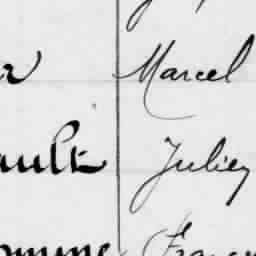 Marcel
ault Julien
omme Franç